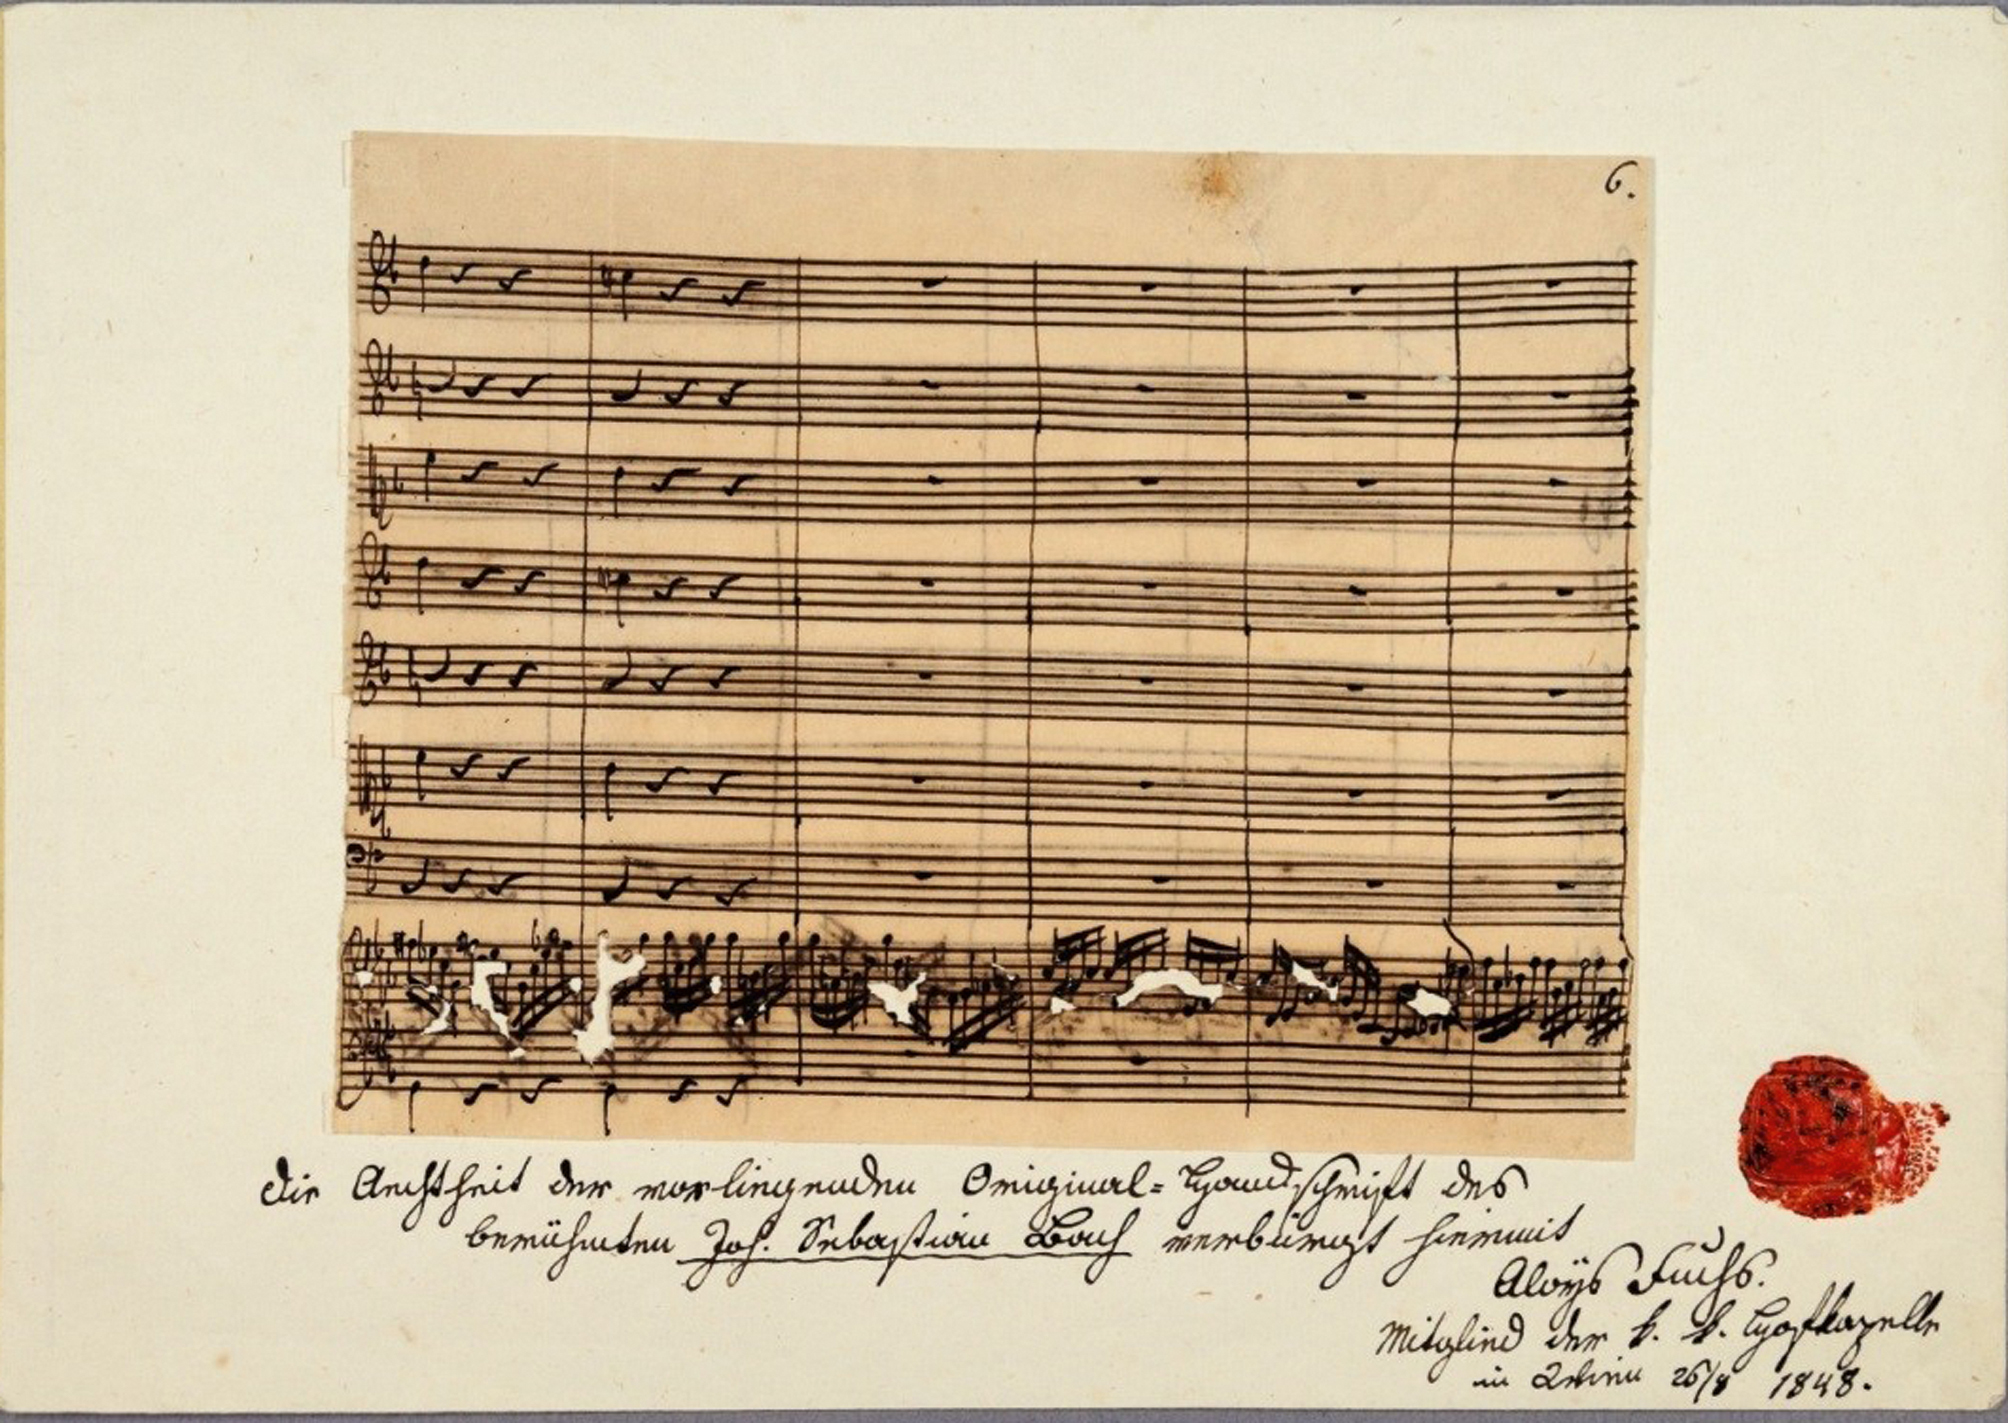 6.
Die Aechtheit der vorliegenden Original=Handschrift des
berühmten Joh. Sebastian Bach verbürgt hiemit
Aloys Fuchs.
Mitglied der k. k. Hofkapelle
in Wien 26/8 1848.